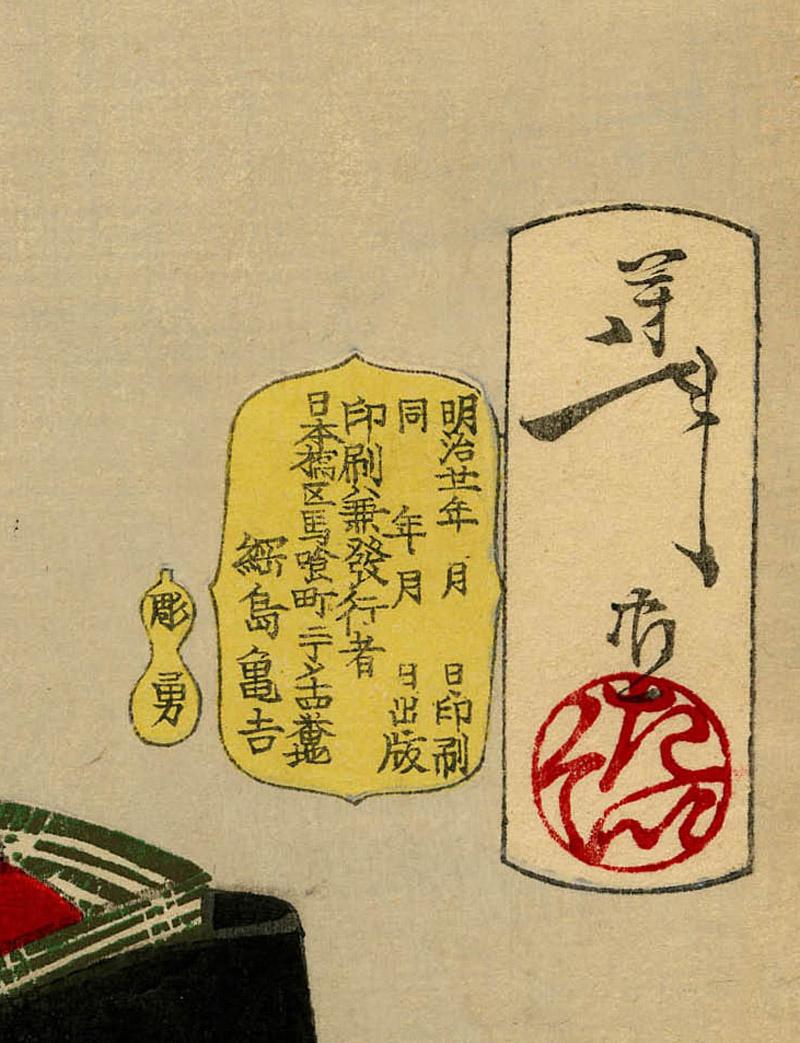 芳年画
明治廿一年 月 日印刷
同 年 月 日出版
印刷兼發行者
日本橋区馬喰町二丁メ十四番地
綱島亀吉
彫勇